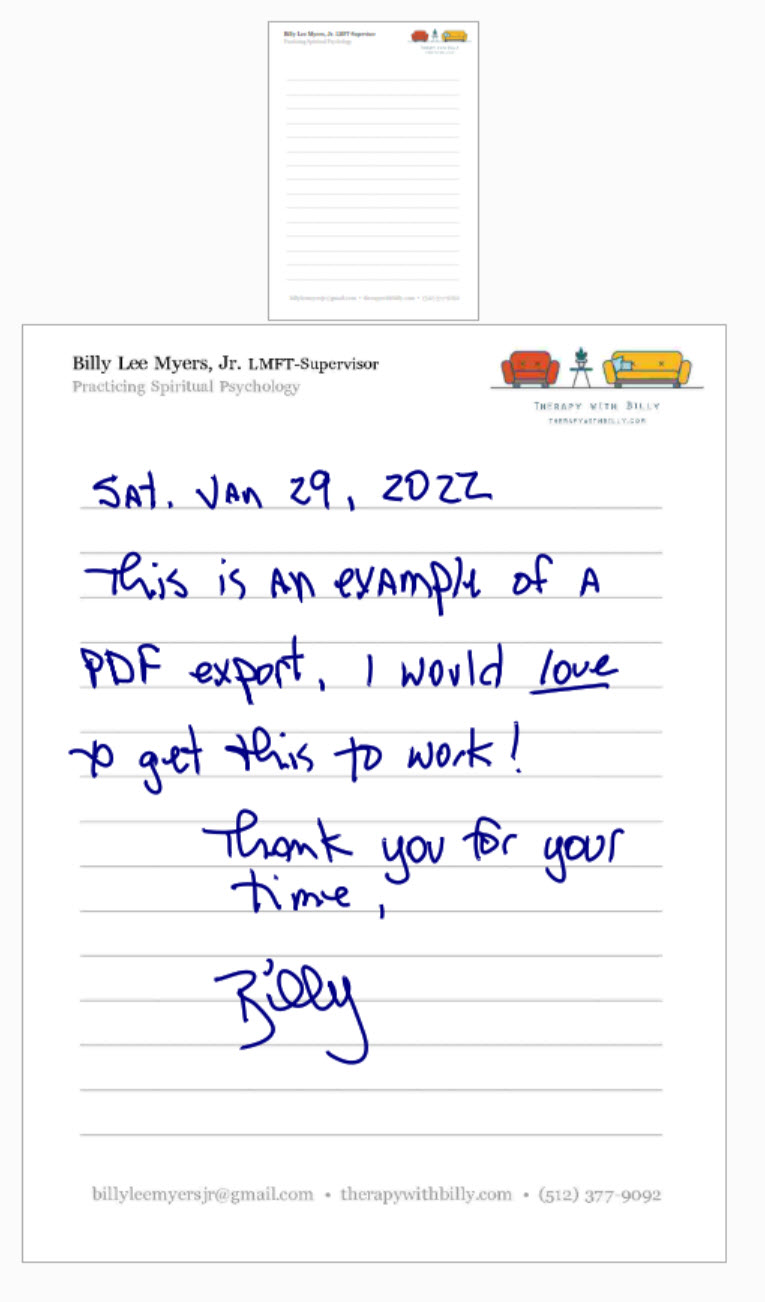 Billy Lee Myers, Jr. LMFT-Supervisor
Practicing Spiritual Psychology
THERAPY WITH BILLY
THERAPYWITHBILLY.COM
billyleemyersjr@gmail.com • therapywithbilly.com • (512) 377-9092
Billy Lee Myers, Jr. LMFT-Supervisor
Practicing Spiritual Psychology
THERAPY WITH BILLY
THERAPYWITHBILLY.COM
SAt. JAn 29, 2022
This is An exAmple of A
PDF export, I would love
to get this to work!
Thank you for your
time,
Billy
billyleemyersjr@gmail.com • therapywithbilly.com • (512) 377-9092